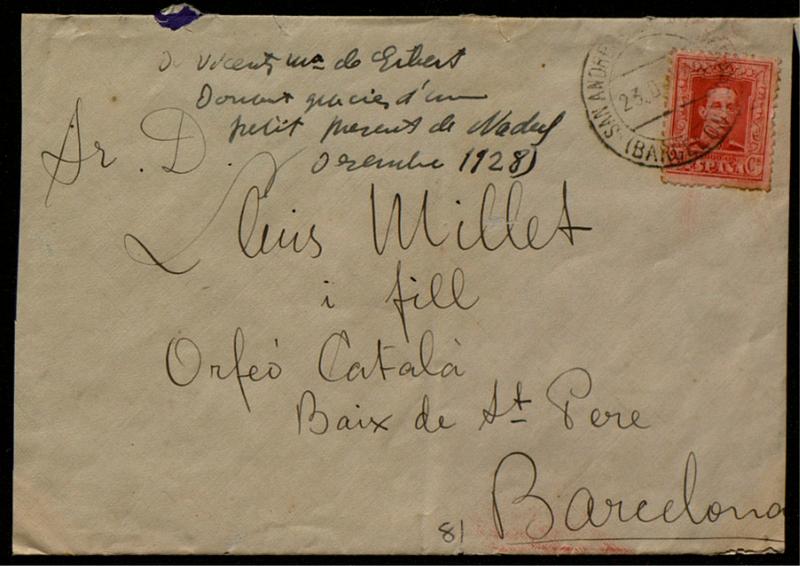 De Vicents Mª de Gibert
Donant gracies d'un
petit present de Nadal
Dezembre 1928)
SAN ANDRE
(BARCELON
23.D
ESPAÑA
Cs
Sr. D.
Lluis Millet
i fill
Orfeó Català
Baix de St. Pere
Barcelona
81